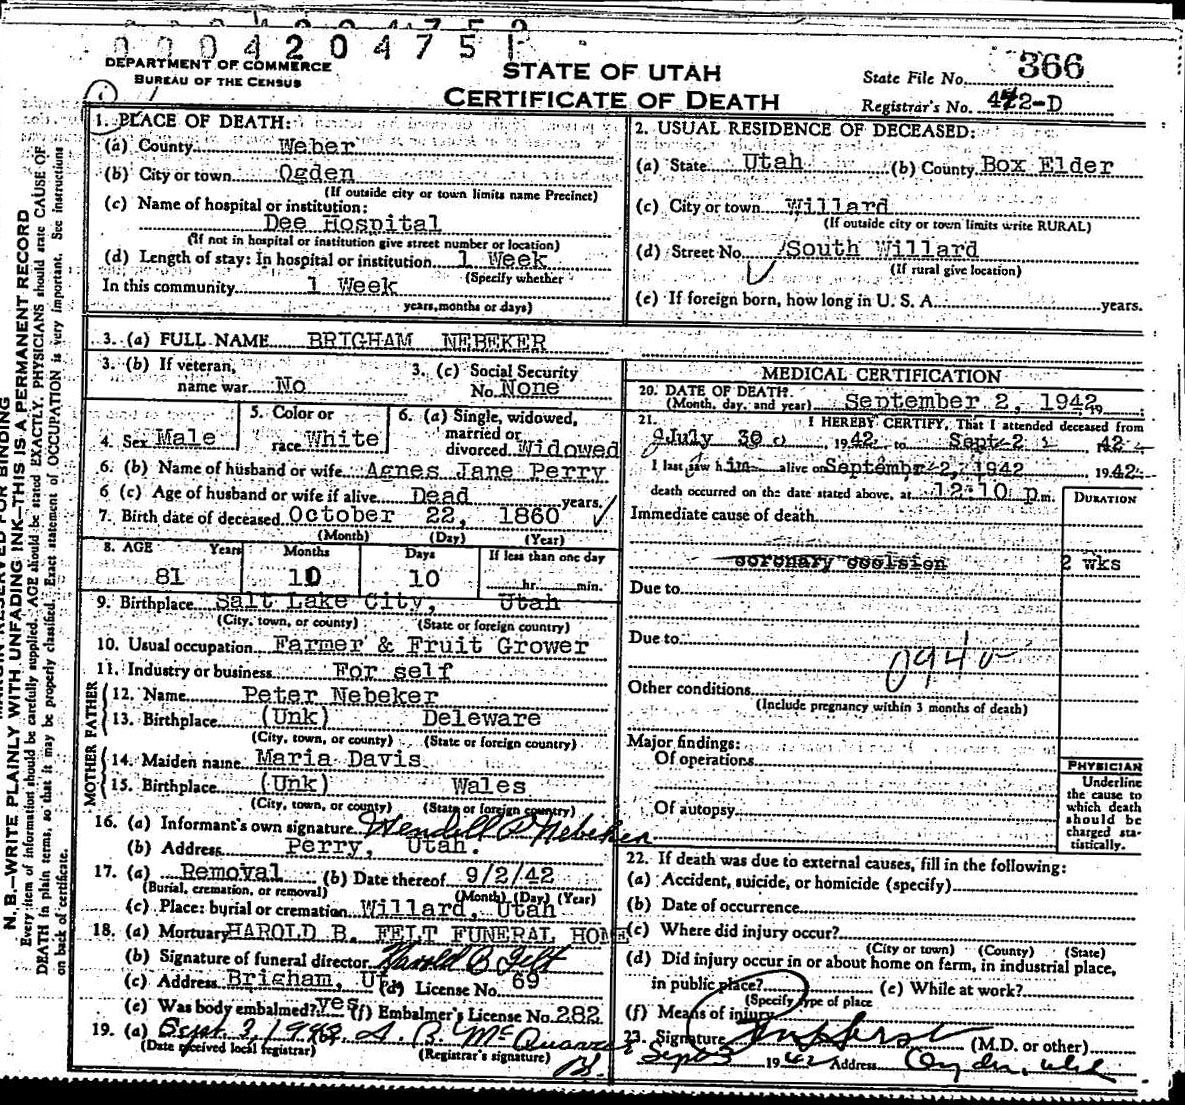 000420475
DEPARTMENT OF COMMERCE
BUREAU OF THE CENSUS
STATE OF UTAH
CERTIFICATE OF DEATH
State File No. 366
Registrar's No. 472-D
N. B.—WRITE PLAINLY WITH UNFADING INK—THIS IS A PERMANENT RECORD
Every item of information should be carefully supplied. AGE should be stated EXACTLY. PHYSICIANS should state CAUSE OF
DEATH in plain terms, so that it may be properly classified. Exact statement of OCCUPATION is very important. See instructions
on back of certificate.
1. PLACE OF DEATH:
(a) County Weber
(b) City or town Ogden
(If outside city or town limits name Precinct)
(c) Name of hospital or institution:
Dee Hospital
(If not in hospital or institution give street number or location)
(d) Length of stay: In hospital or institution 1 Week
(Specify whether
In this community 1 Week
years, months or days)
2. USUAL RESIDENCE OF DECEASED:
(a) State Utah (b) County Box Elder
(c) City or town Willard
(If outside city or town limits write RURAL)
(d) Street No. South Willard
(If rural give location)
(e) If foreign born, how long in U. S. A. years.
3. (a) FULL NAME BRIGHAM NEBEKER
3. (b) If veteran, name war No
3. (c) Social Security No. None
4. Sex Male
5. Color or race White
6. (a) Single, widowed, married or divorced Widowed
6. (b) Name of husband or wife Agnes Jane Perry
6 (c) Age of husband or wife if alive Dead years.
7. Birth date of deceased October 22, 1860
(Month) (Day) (Year)
8. AGE Years Months Days If less than one day
81 10 10 hr. min.
9. Birthplace Salt Lake City, Utah
(City, town, or county) (State or foreign country)
10. Usual occupation Farmer & Fruit Grower
11. Industry or business For self
FATHER
12. Name Peter Nebeker
13. Birthplace (Unk) Deleware
(City, town, or county) (State or foreign country)
MOTHER
14. Maiden name Maria Davis
15. Birthplace (Unk) Wales
(City, town, or county) (State or foreign country)
16. (a) Informant's own signature Wendell P Nebeker
(b) Address Perry, Utah.
17. (a) Removal (b) Date thereof 9/2/42
(Burial, cremation, or removal) (Month) (Day) (Year)
(c) Place: burial or cremation Willard, Utah
18. (a) Mortuary HAROLD B. FELT FUNERAL HOME
(b) Signature of funeral director Harold B Felt
(c) Address Brigham, U (d) License No. 69
(e) Was body embalmed? yes (f) Embalmer's License No. 282
19. (a) Sept. 3, 1942
(Date received local registrar) (Registrar's signature)
MEDICAL CERTIFICATION
20. DATE OF DEATH
(Month, day, and year) September 2, 1942 19
21. I HEREBY CERTIFY, That I attended deceased from
July 30 1942 to Sept 2 42
I last saw him alive on September 2, 1942 1942
death occurred on the date stated above, at 12:10 p.m.
DURATION
Immediate cause of death
coronary occlsion 2 wks
Due to
Due to
0940
Other conditions
(Include pregnancy within 3 months of death)
Major findings:
Of operations
Of autopsy
PHYSICIAN
Underline
the cause to
which death
should be
charged sta-
tistically.
22. If death was due to external causes, fill in the following:
(a) Accident, suicide, or homicide (specify)
(b) Date of occurrence
(c) Where did injury occur?
(City or town) (County) (State)
(d) Did injury occur in or about home on farm, in industrial place,
in public place? (e) While at work?
(Specify type of place
(f) Means of injury
23. Signature (M.D. or other)
Sept 3 1942 Address Ogden, Utah